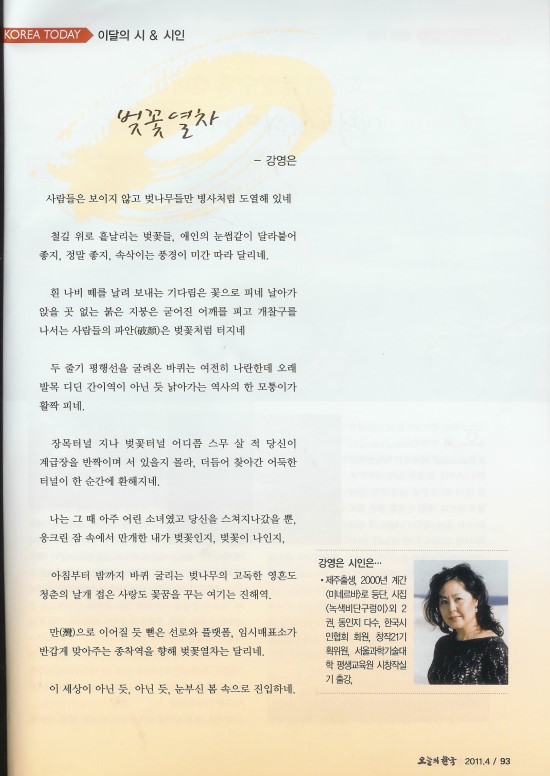 KOREA TODAY 이달의 시 & 시인
벚꽃 열차
- 강영은
사람들은 보이지 않고 벚나무들만 병사처럼 도열해 있네
철길 위로 흩날리는 벚꽃들, 애인의 눈썹같이 달라붙어
좋지, 정말 좋지, 속삭이는 풍경이 미간 따라 달리네.
흰 나비 떼를 날려 보내는 기다림은 꽃으로 피네 날아가
앉을 곳 없는 붉은 지붕은 굳어진 어깨를 펴고 개찰구를
나서는 사람들의 파안(破顔)은 벚꽃처럼 터지네
두 줄기 평행선을 굴려온 바퀴는 여전히 나란한데 오래
발목 디딘 간이역이 아닌 듯 낡아가는 역사의 한 모퉁이가
활짝 피네.
장목터널 지나 벚꽃터널 어디쯤 스무 살 적 당신이
계급장을 반짝이며 서 있을지 몰라, 더듬어 찾아간 어둑한
터널이 한 순간에 환해지네.
나는 그 때 아주 어린 소녀였고 당신을 스쳐지나갔을 뿐,
웅크린 잠 속에서 만개한 내가 벚꽃인지, 벚꽃이 나인지,
아침부터 밤까지 바퀴 굴리는 벚나무의 고독한 영혼도
청춘의 날개 접은 사랑도 꽃꿈을 꾸는 여기는 진해역.
만(灣)으로 이어질 듯 뻗은 선로와 플랫폼, 임시매표소가
반갑게 맞아주는 종착역을 향해 벚꽃열차는 달리네.
이 세상이 아닌 듯, 아닌 듯, 눈부신 봄 속으로 진입하네.
강영은 시인은…
• 제주출생, 2000년 계간
《미네르바》로 등단, 시집
《녹색비단구렁이》외 2
권, 동인지 다수, 한국시
인협회 회원, 창작21기
획위원, 서울과학기술대
학 평생교육원 시창작실
기 출강,
오늘의 한국 2011.4 / 93